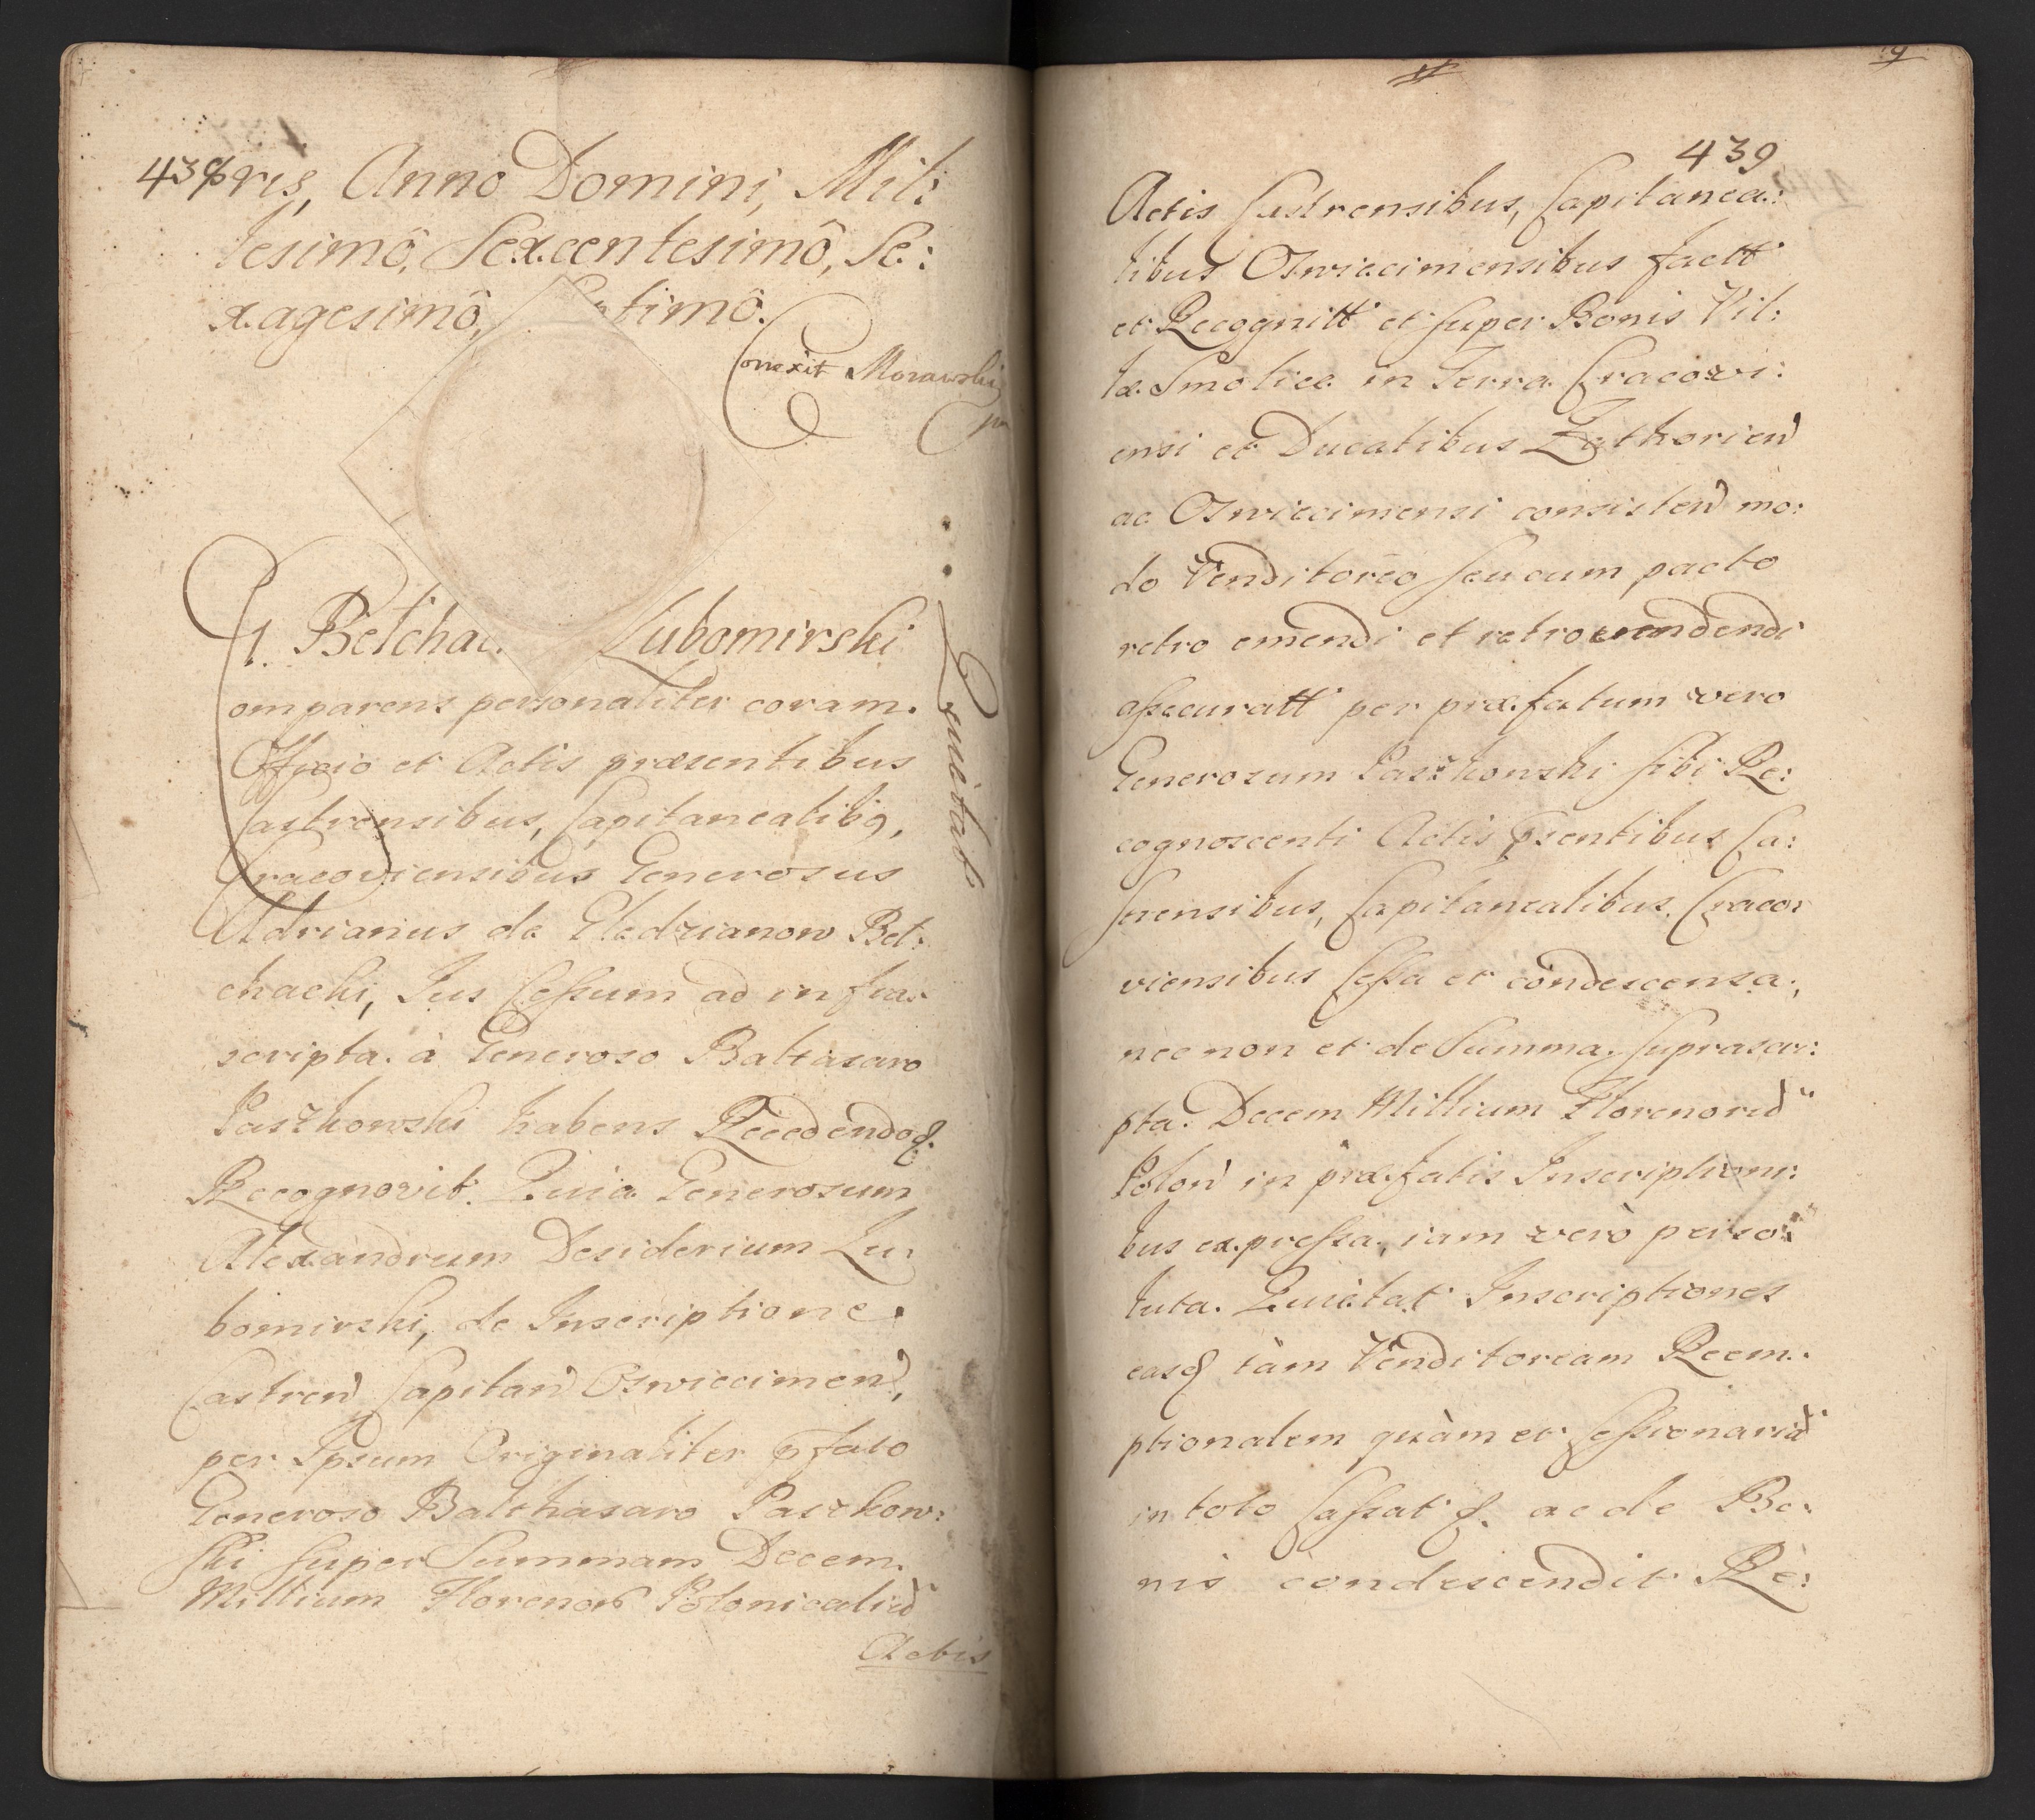 438
ris, Anno Domini, Mil:
lesimô, Sexcentesimô, Se:
xagesimô, timô.
Conexit Morawski
G. Betchac. Lubomirski
Quietat
Comparens personaliter coram.
Officio et Actis præsentibus
Castrensibus, Capitanealibꝙ,
Cracoviensibus Generosus
Adrianus de Gledzianow Bet:
chacki, Jus Cessum ad infra:
scripta. à Generoso Baltazaro
Paszkowski habens Recedendoq.
Recognovit. Quia Generosum
Alexandrum Desiderium Lu:
bomirski, de Inscriptione.
Castren Capitan Oswiecimen,
per Ipsum Originaliter pfato
Generoso Balthasaro Paszkow:
ski super Summam Decem.
Millium Floreno Polonicaliu
Actis
9
439
Actis Castrensibus, Capitanea:
libus Oswiecimensibus factt
et Recognitt et super Bonis Vil:
læ. Smolice in Terra Cracovi:
ensi et Ducatibus Zathorien
ac Oswiecimensi consisten mo:
do Venditoreo seu cum pacto
retro emendi et retrovendendi
assecuratt per præfatum vero
Generosum Paszkowski sibi Re:
cognoscenti Actis psentibus Ca:
strensibus, Capitanealibus. Craco:
viensibus Cessa et condescensa,
necnon et de Summa. suprascri:
pta. Decem Millium Florenoru
Polon in præfatis Inscriptioni:
bus expressa, iam verò perso:
luta. Quietat Inscriptiones
easq tàm Venditoriam Reem:
ptionalem quàm et Cessionariã
in toto Cassat q. ac de Bo:
nis condescendit Re: